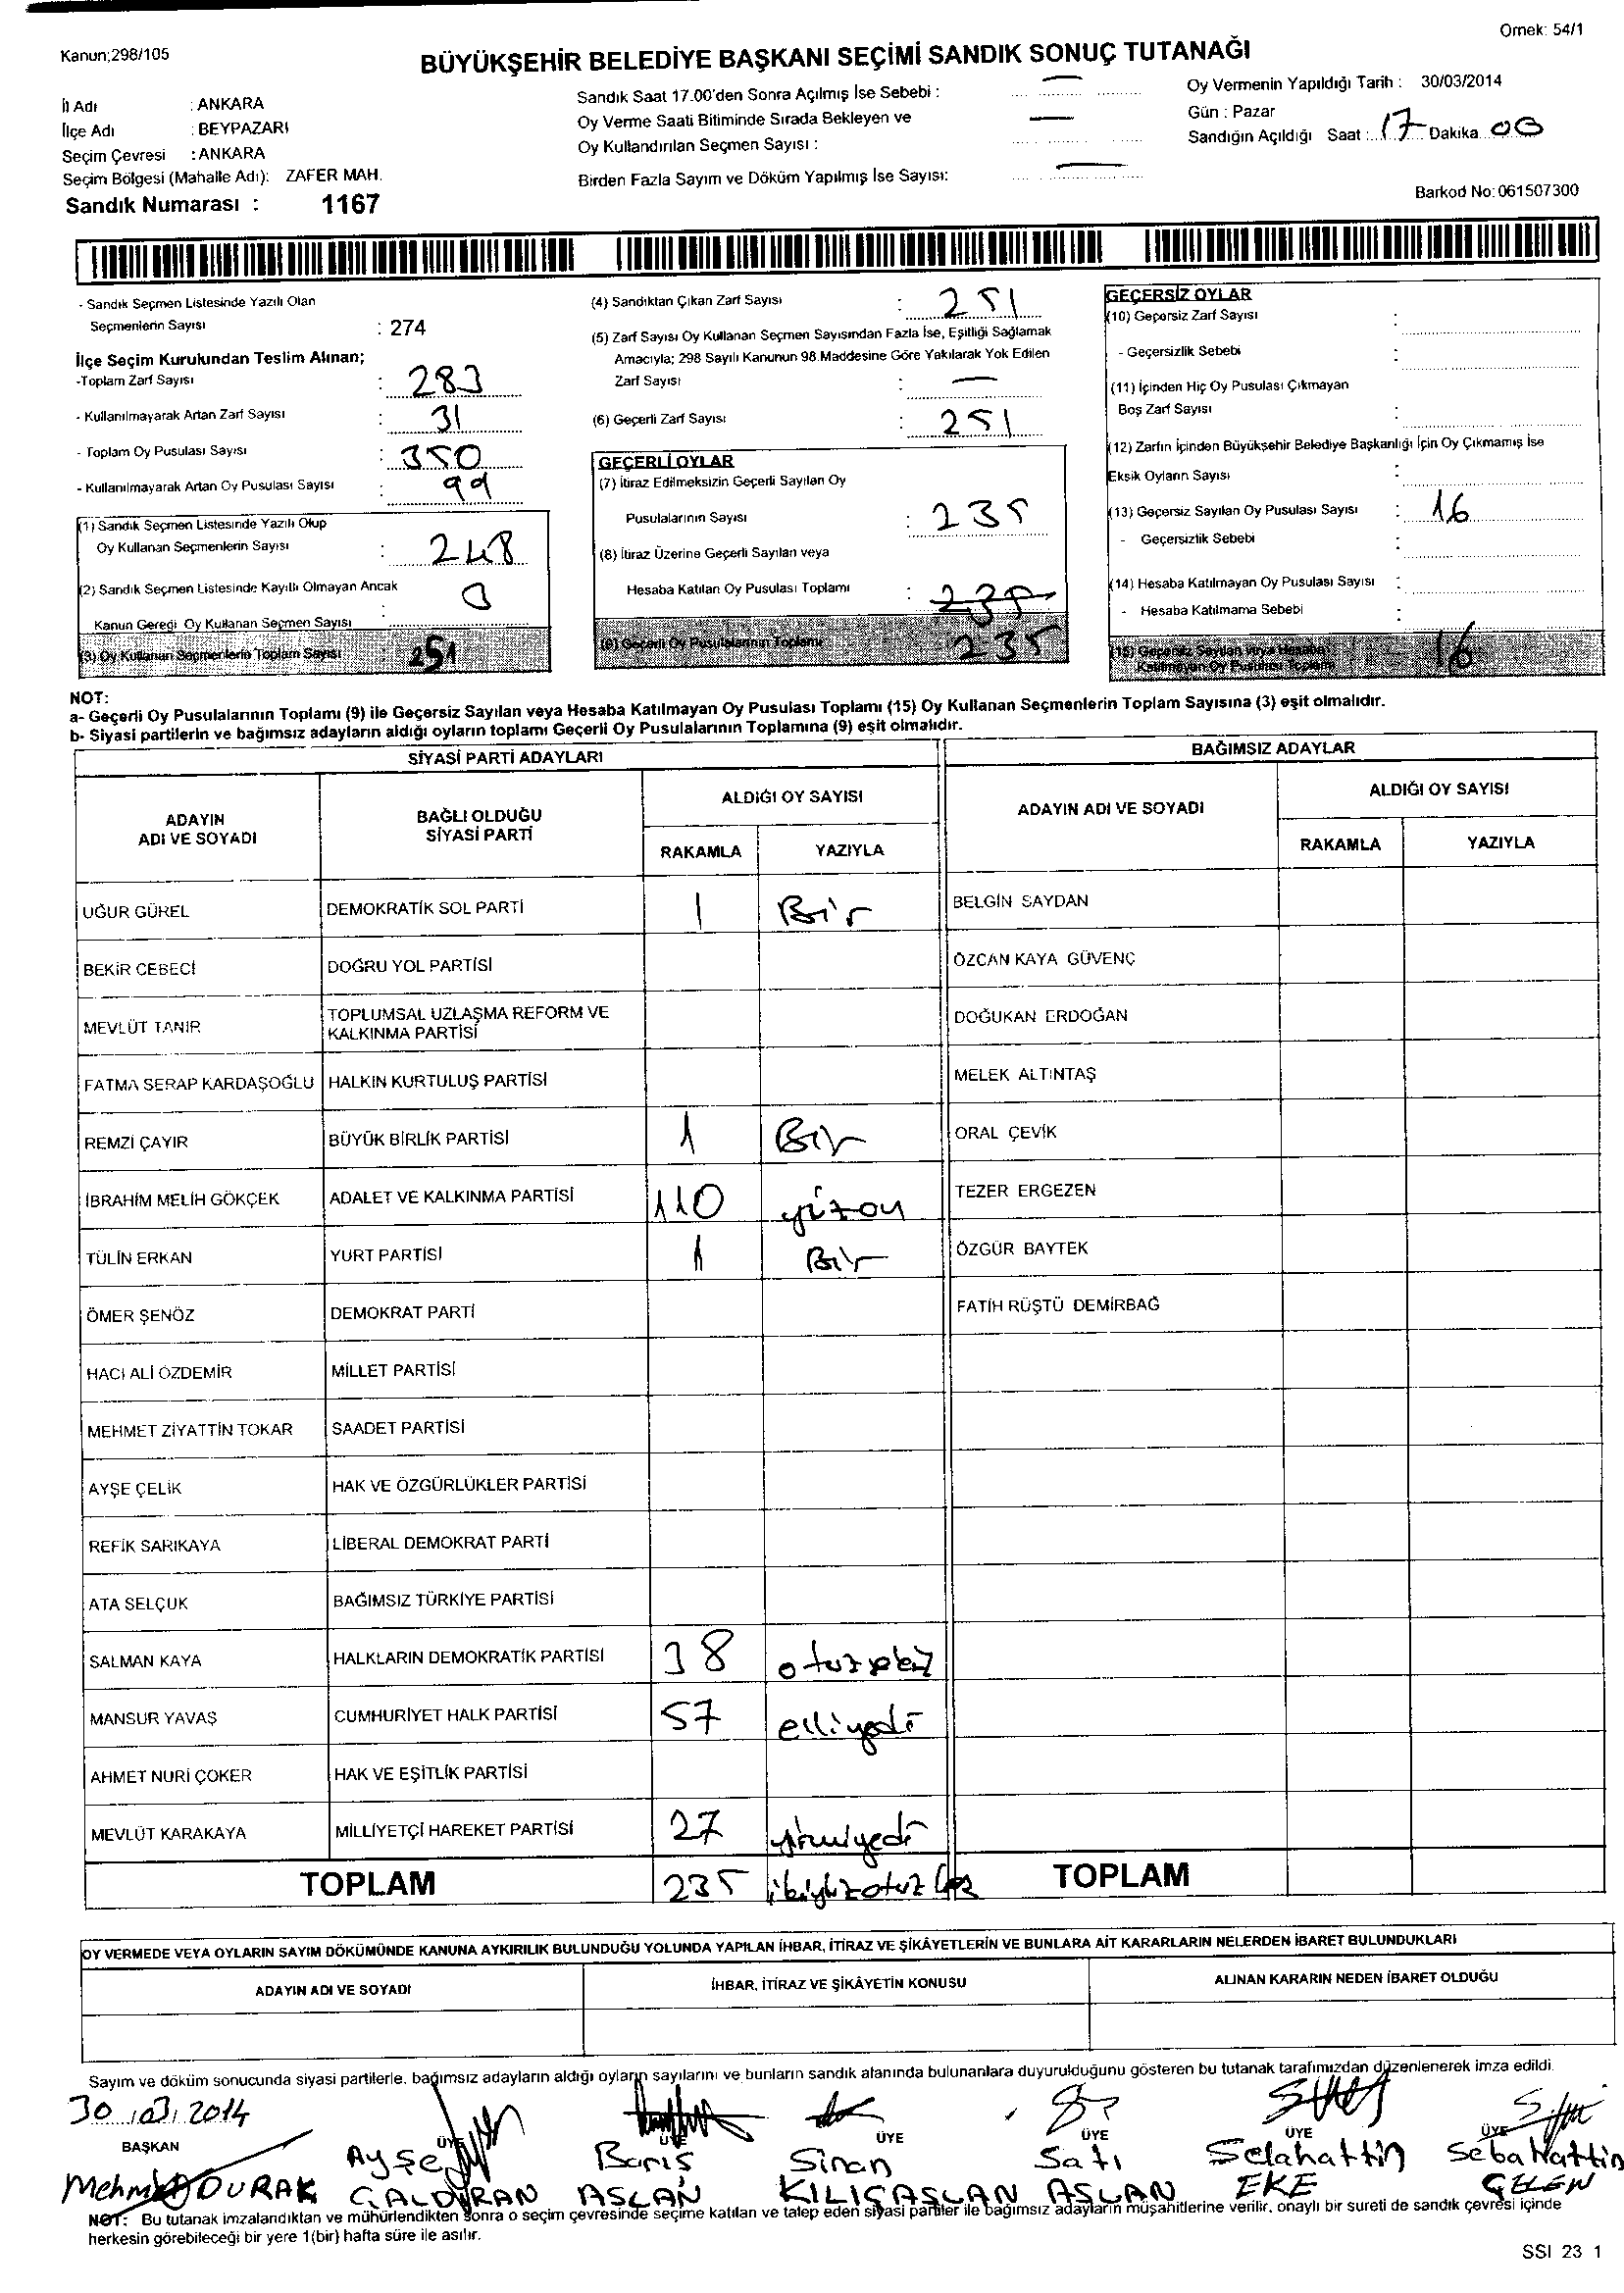 Örnek: 54/1
Kanun;298/105
BÜYÜKŞEHİR BELEDİYE BAŞKANI SEÇİMİ SANDIK SONUÇ TUTANAĞI
İl Adı : ANKARA
İlçe Adı : BEYPAZARI
Seçim Çevresi : ANKARA
Seçim Bölgesi (Mahalle Adı): ZAFER MAH.
Sandık Numarası : 1167
Sandık Saat 17.00'den Sonra Açılmış İse Sebebi : —
Oy Verme Saati Bitiminde Sırada Bekleyen ve —
Oy Kullandırılan Seçmen Sayısı :
Birden Fazla Sayım ve Döküm Yapılmış İse Sayısı: —
Oy Vermenin Yapıldığı Tarih : 30/03/2014
Gün : Pazar
Sandığın Açıldığı Saat : 17 Dakika 00
Barkod No: 061507300
- Sandık Seçmen Listesinde Yazılı Olan
Seçmenlerin Sayısı : 274
İlçe Seçim Kurulundan Teslim Alınan;
-Toplam Zarf Sayısı : 283
- Kullanılmayarak Artan Zarf Sayısı : 31
- Toplam Oy Pusulası Sayısı : 350
- Kullanılmayarak Artan Oy Pusulası Sayısı : 99
(1) Sandık Seçmen Listesinde Yazılı Olup
Oy Kullanan Seçmenlerin Sayısı : 248
(2) Sandık Seçmen Listesinde Kayıtlı Olmayan Ancak
Kanun Gereği Oy Kullanan Seçmen Sayısı :
(3) Oy Kullanan Seçmenlerin Toplam Sayısı : 251
(4) Sandıktan Çıkan Zarf Sayısı : 251
(5) Zarf Sayısı Oy Kullanan Seçmen Sayısından Fazla İse, Eşitliği Sağlamak
Amacıyla; 298 Sayılı Kanunun 98.Maddesine Göre Yakılarak Yok Edilen
Zarf Sayısı : —
(6) Geçerli Zarf Sayısı : 251
GEÇERLİ OYLAR
(7) İtiraz Edilmeksizin Geçerli Sayılan Oy
Pusulalarının Sayısı : 235
(8) İtiraz Üzerine Geçerli Sayılan veya
Hesaba Katılan Oy Pusulası Toplamı :
(9) Geçerli Oy Pusulalarının Toplamı 235
GEÇERSİZ OYLAR
(10) Geçersiz Zarf Sayısı :
- Geçersizlik Sebebi :
(11) İçinden Hiç Oy Pusulası Çıkmayan
Boş Zarf Sayısı :
(12) Zarfın İçinden Büyükşehir Belediye Başkanlığı İçin Oy Çıkmamış İse
Eksik Oyların Sayısı :
(13) Geçersiz Sayılan Oy Pusulası Sayısı : 16
- Geçersizlik Sebebi :
(14) Hesaba Katılmayan Oy Pusulası Sayısı :
- Hesaba Katılmama Sebebi :
(15) Geçersiz Sayılan veya Hesaba
Katılmayan Oy Pusulası Toplamı 16
NOT:
a- Geçerli Oy Pusulalarının Toplamı (9) ile Geçersiz Sayılan veya Hesaba Katılmayan Oy Pusulası Toplamı (15) Oy Kullanan Seçmenlerin Toplam Sayısına (3) eşit olmalıdır.
b- Siyasi partilerin ve bağımsız adayların aldığı oyların toplamı Geçerli Oy Pusulalarının Toplamına (9) eşit olmalıdır.
SİYASİ PARTİ ADAYLARI
ADAYIN ADI VE SOYADI BAĞLI OLDUĞU SİYASİ PARTİ ALDIĞI OY SAYISI
RAKAMLA YAZIYLA
UĞUR GÜREL DEMOKRATİK SOL PARTİ 1 Bir
BEKİR CEBECİ DOĞRU YOL PARTİSİ
MEVLÜT TANIR TOPLUMSAL UZLAŞMA REFORM VE KALKINMA PARTİSİ
FATMA SERAP KARDAŞOĞLU HALKIN KURTULUŞ PARTİSİ
REMZİ ÇAYIR BÜYÜK BİRLİK PARTİSİ 1 Bir
İBRAHİM MELİH GÖKÇEK ADALET VE KALKINMA PARTİSİ 110 yüzon
TÜLİN ERKAN YURT PARTİSİ 1 Bir
ÖMER ŞENÖZ DEMOKRAT PARTİ
HACI ALİ ÖZDEMİR MİLLET PARTİSİ
MEHMET ZİYATTİN TOKAR SAADET PARTİSİ
AYŞE ÇELİK HAK VE ÖZGÜRLÜKLER PARTİSİ
REFİK SARIKAYA LİBERAL DEMOKRAT PARTİ
ATA SELÇUK BAĞIMSIZ TÜRKİYE PARTİSİ
SALMAN KAYA HALKLARIN DEMOKRATİK PARTİSİ 38
MANSUR YAVAŞ CUMHURİYET HALK PARTİSİ 57 elliyedi
AHMET NURİ ÇOKER HAK VE EŞİTLİK PARTİSİ
MEVLÜT KARAKAYA MİLLİYETÇİ HAREKET PARTİSİ 27 yirmiyedi
TOPLAM 235 ikiyüzotuzbeş
BAĞIMSIZ ADAYLAR
ADAYIN ADI VE SOYADI ALDIĞI OY SAYISI
RAKAMLA YAZIYLA
BELGİN SAYDAN
ÖZCAN KAYA GÜVENÇ
DOĞUKAN ERDOĞAN
MELEK ALTINTAŞ
ORAL ÇEVİK
TEZER ERGEZEN
ÖZGÜR BAYTEK
FATİH RÜŞTÜ DEMİRBAĞ
TOPLAM
OY VERMEDE VEYA OYLARIN SAYIM DÖKÜMÜNDE KANUNA AYKIRILIK BULUNDUĞU YOLUNDA YAPILAN İHBAR, İTİRAZ VE ŞİKÂYETLERİN VE BUNLARA AİT KARARLARIN NELERDEN İBARET BULUNDUKLARI
ADAYIN ADI VE SOYADI İHBAR, İTİRAZ VE ŞİKÂYETİN KONUSU ALINAN KARARIN NEDEN İBARET OLDUĞU
Sayım ve döküm sonucunda siyasi partilerle, bağımsız adayların aldığı oyların sayılarını ve bunların sandık alanında bulunanlara duyurulduğunu gösteren bu tutanak tarafımızdan düzenlenerek imza edildi.
30/03/2014
BAŞKAN ÜYE ÜYE ÜYE ÜYE ÜYE ÜYE
Ayşe Barış Sinan Satı Selahattin Sebahattin
Mehmet DURAK ÇALDIRAN ASLAN KILIÇASLAN ASLAN EKE GELEN
NOT: Bu tutanak imzalandıktan ve mühürlendikten sonra o seçim çevresinde seçime katılan ve talep eden siyasi partiler ile bağımsız adayların müşahitlerine verilir, onaylı bir sureti de sandık çevresi içinde
herkesin görebileceği bir yere 1(bir) hafta süre ile asılır.
SSI 23 1